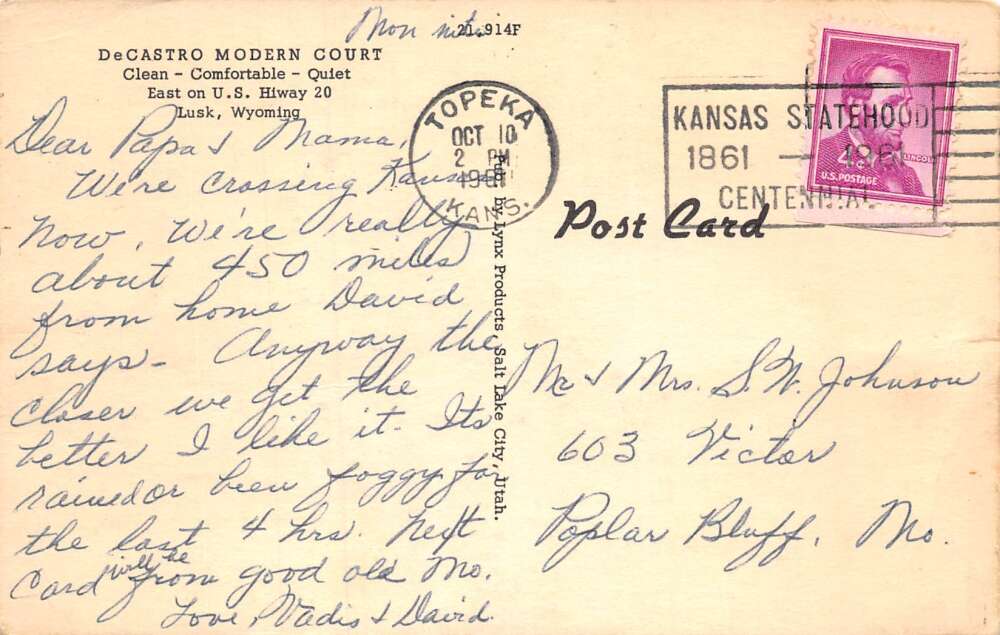 Mon nite.
21,914F
DeCASTRO MODERN COURT
Clean - Comfortable - Quiet
East on U.S. Hiway 20
Lusk, Wyoming
TOPEKA
OCT 10
2 PM
1961
KANS.
KANSAS STATEHOOD
1861 — 1961
CENTENNIAL
4¢
LINCOLN
U.S. POSTAGE
Post Card
Pub. by Lynx Products, Salt Lake City, Utah.
Dear Papa & Mama,
We're crossing Kansas
now. We're really
about 450 miles
from home David
says - Anyway the
closer we get the
better I like it. Its
rained or been foggy for
the last 4 hrs. Next
Card will be from good old Mo.
Love, Vadis & David.
Mr & Mrs. S.W. Johnson
603 Victor
Poplar Bluff, Mo.